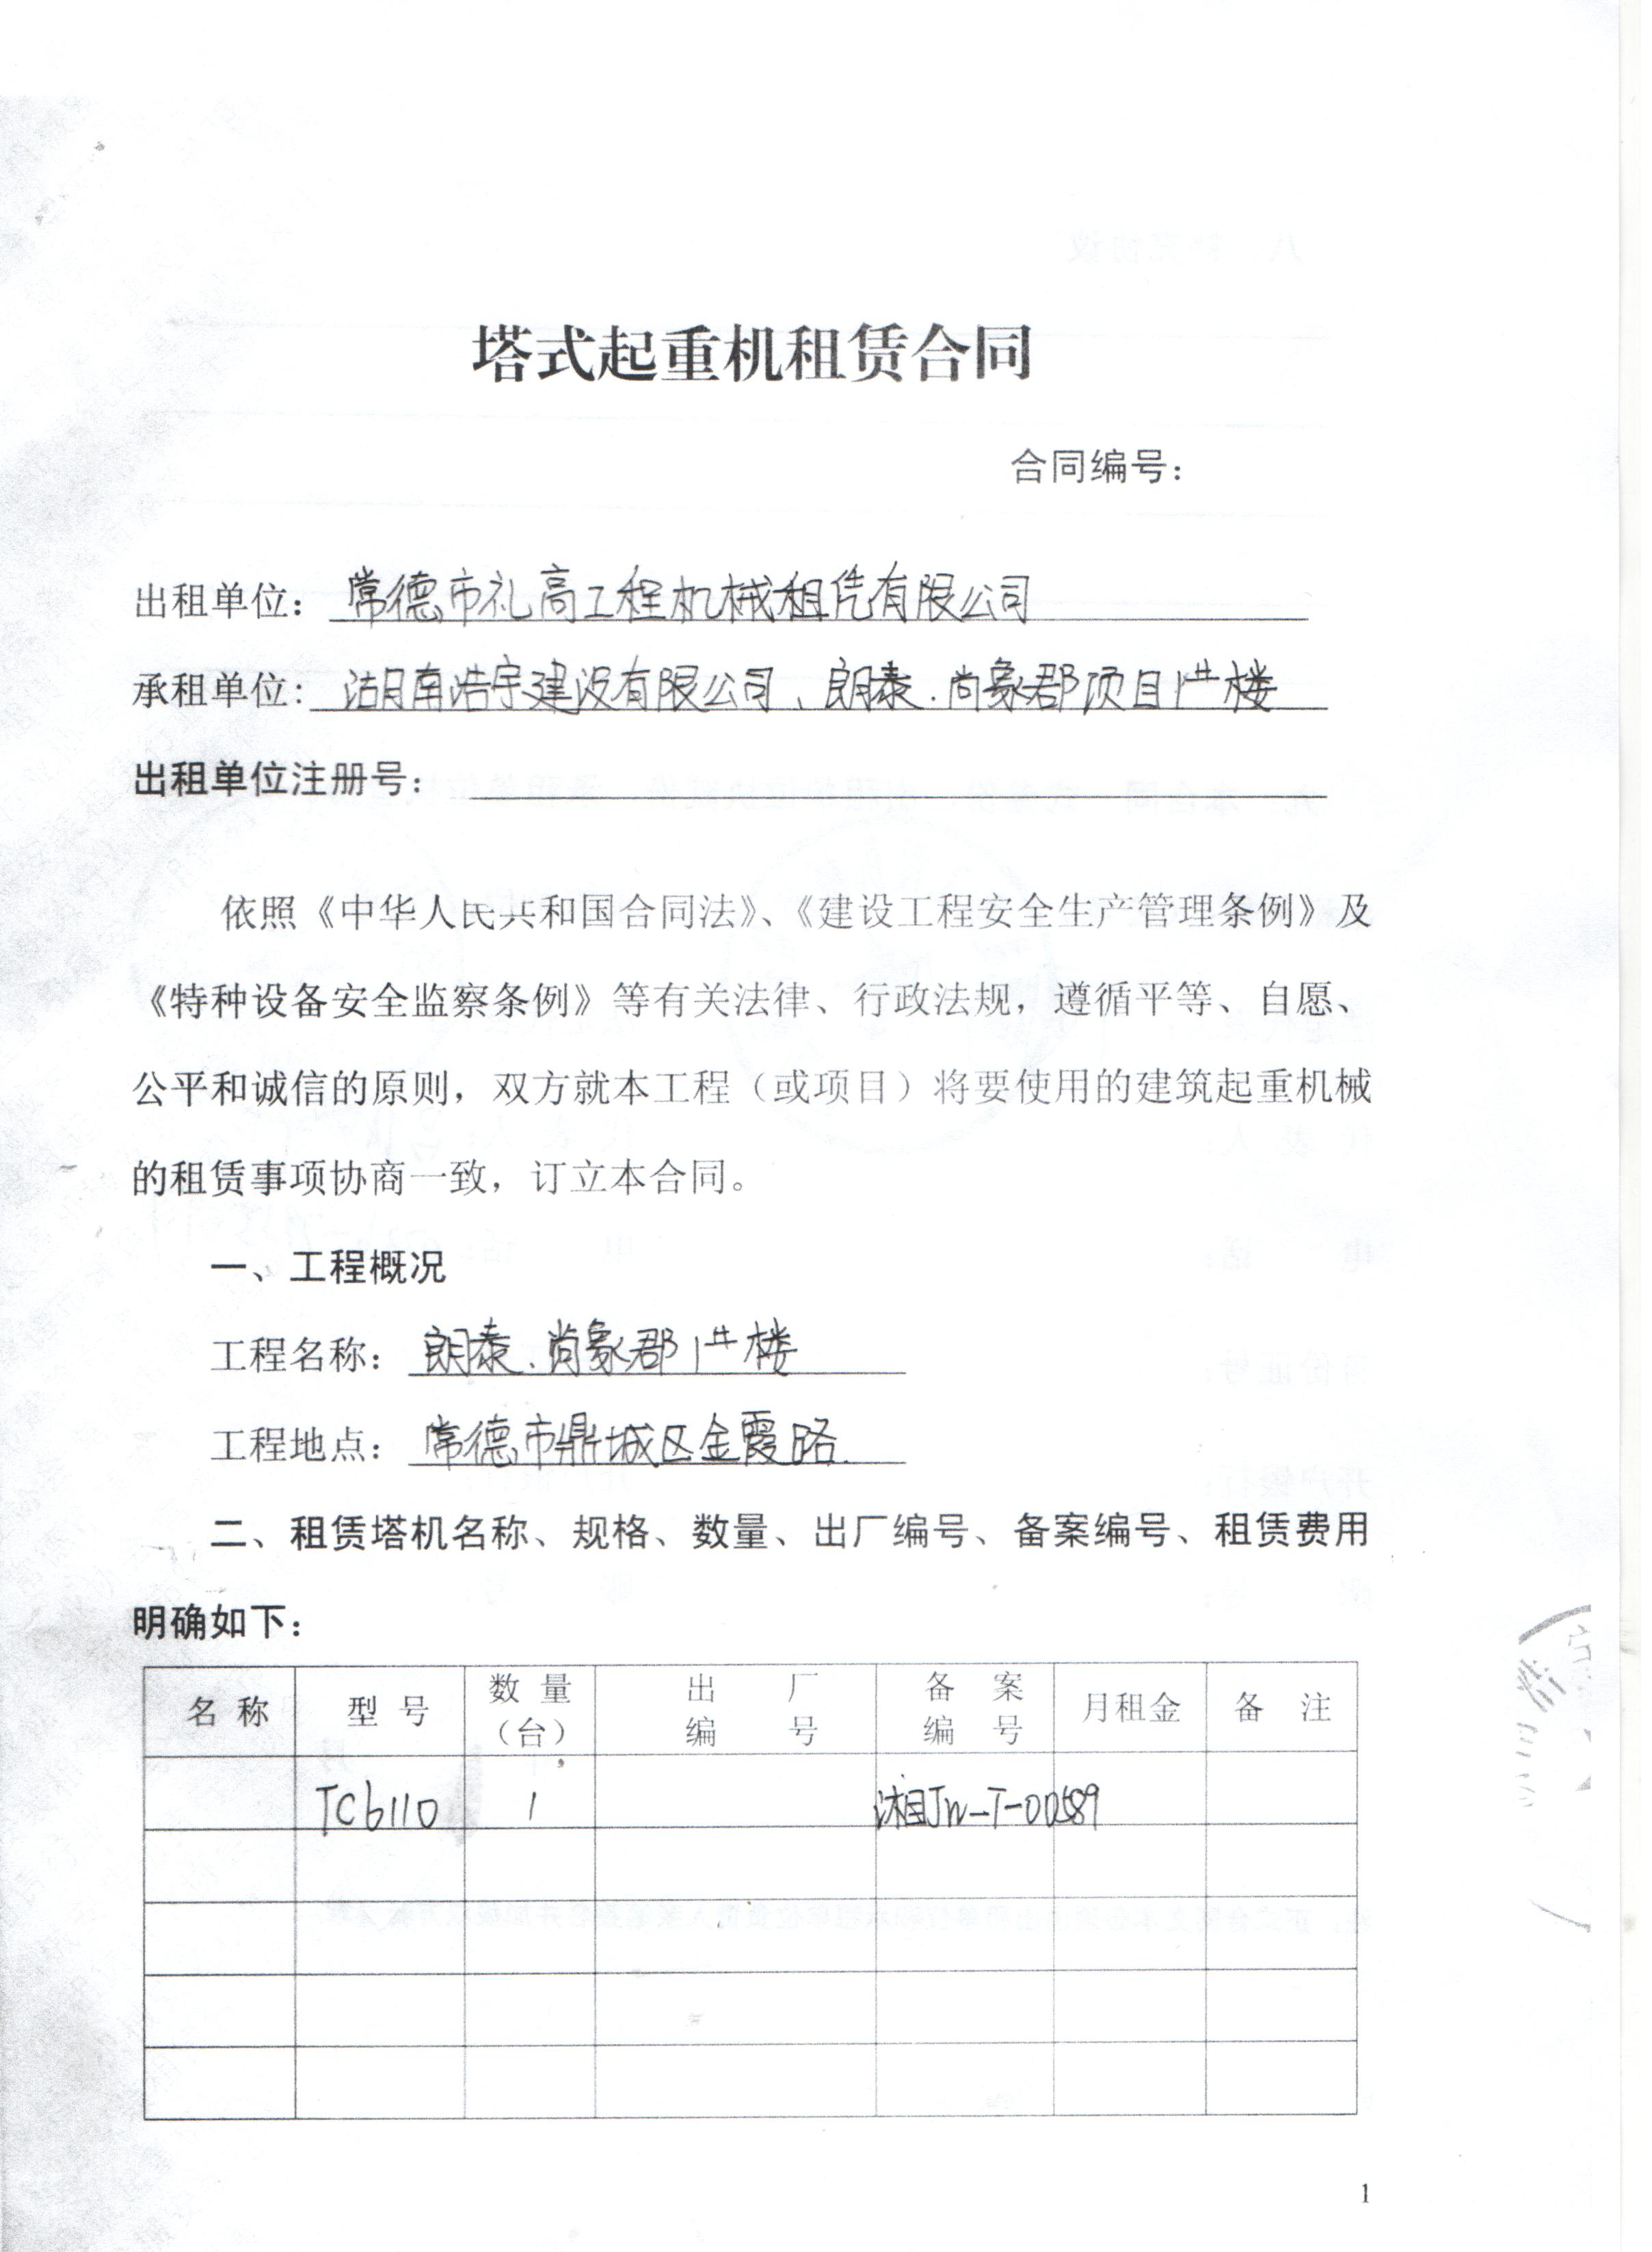 塔式起重机租赁合同
合同编号：
出租单位：常德市礼高工程机械租赁有限公司
承租单位：湖南浩宇建设有限公司、朗泰.尚象郡项目1#楼
出租单位注册号：
依照《中华人民共和国合同法》、《建设工程安全生产管理条例》及
《特种设备安全监察条例》等有关法律、行政法规，遵循平等、自愿、
公平和诚信的原则，双方就本工程（或项目）将要使用的建筑起重机械
的租赁事项协商一致，订立本合同。
一、工程概况
工程名称：朗泰.尚象郡1#楼
工程地点：常德市鼎城区金霞路.
二、租赁塔机名称、规格、数量、出厂编号、备案编号、租赁费用
明确如下：
名称 型号 数量（台） 出厂编号 备案编号 月租金 备注
TC6110 1 湘JW-T-00589
1